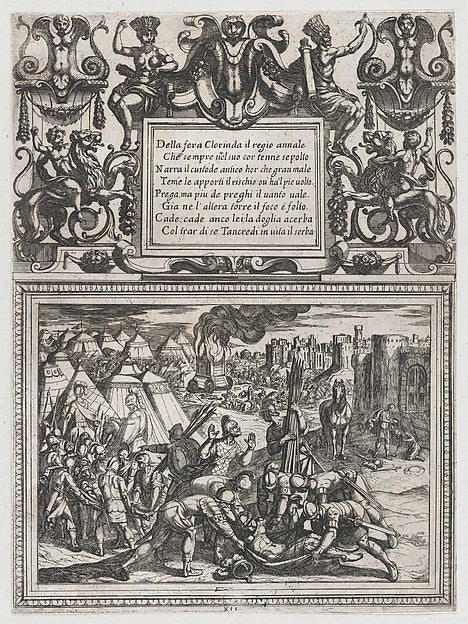 Della fera Clorinda il regio annale
Che sempre nel suo cor tenne sepolto
Narra il custode antico hor che gran male
Teme le apporti il rischio ou ha'l pie uolto.
Prega, ma piu de preghi il uanto uale.
Gia ne l'altera torre il foco è folto.
Cade; cade anco lei; la doglia acerba
Col frar di se Tancredi in uita il serba
XII